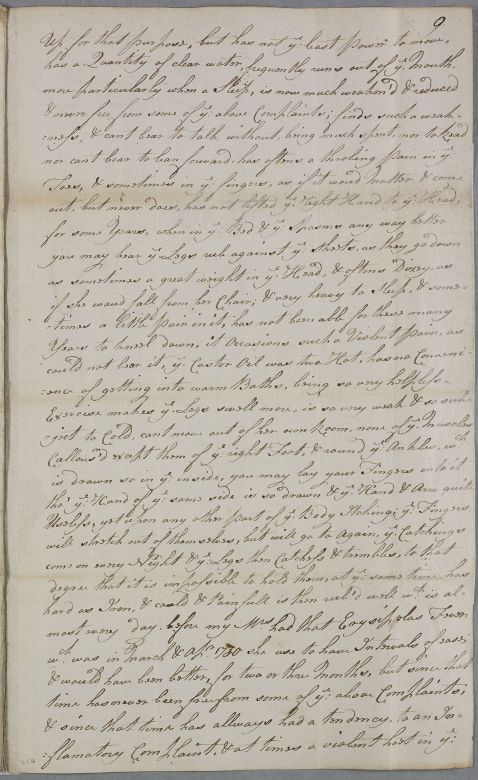 9
Up for that purpose, but has not yͤ. least power to move,
has a Quantity of clear water, frequently runs out of yͤ. Mouth,
more particularly when a Sleep, is now much weaken'd & reduced
& never free from some of yͤ. above Complaints; finds such a weak-
-ness, & cant bear to talk without being much spent, nor to Read
nor cant bear to lean forward. has oftens a throbing Pain in yͤ
Toes, & sometimes in yͤ. fingers, as if it woud matter & come
out, but never does, has not lifted yͤ. Right Hand to yͤ. Head,
for some Years, when in yͤ. Bed & yͤ. Spasms any way better
you may hear yͤ. Legs rub against yͤ. sheets, as they go down
as sometimes a great weight in yͤ. Head, & oftens Dizey, as
if she woud fall from her Chair, & very heavy to Sleep, & some-
-times a little pain in it, has not been able for these many
Years to kneel down, it Occasions such a Violent Pain, as
could not bear it, yͤ. Castor Oil was two Hot, has no Conveni-
-ence of getting into warm Baths, being so very helpless-
Exercise makes yͤ. Legs swell more, is so very weak & so sub-
-ject to Cold, cant move out of her own Room, none of yͤ. Muscles
Callous'd except them of yͤ. right Foot, & round yͤ. Ankles, wͨͪ
is drawn so in yͤ. inside, you may lay your Fingers into it
tho' yͤ. Hand of yͤ. same side is so drawn & yͤ. Hand & Arm quite
Useless, yet upon any other part of yͤ. Body Itching, yͤ. Fingers
will stretch out of themselves, but will go to again, yͤ. Catchings
come on every Night & yͤ. Legs then Catches & trembles, to that
degree that it is impossible to hold them, at yͤ. same time has
hard as Iron, & could & Painfull is then rub'd well wͨͪ. is al-
most every day. before my Mrs had that Erysipplas Fever
wͨͪ. was in March & Apͬ. 1780 she use to have Intervals of ease,
& would have been better, for two or three Months, but since that
time has never been free from some of yͤ. above Complaints;
& since that time has allways had a tendency to an In-
-flamatory Complaint, & at times a violent heat in yͤ: